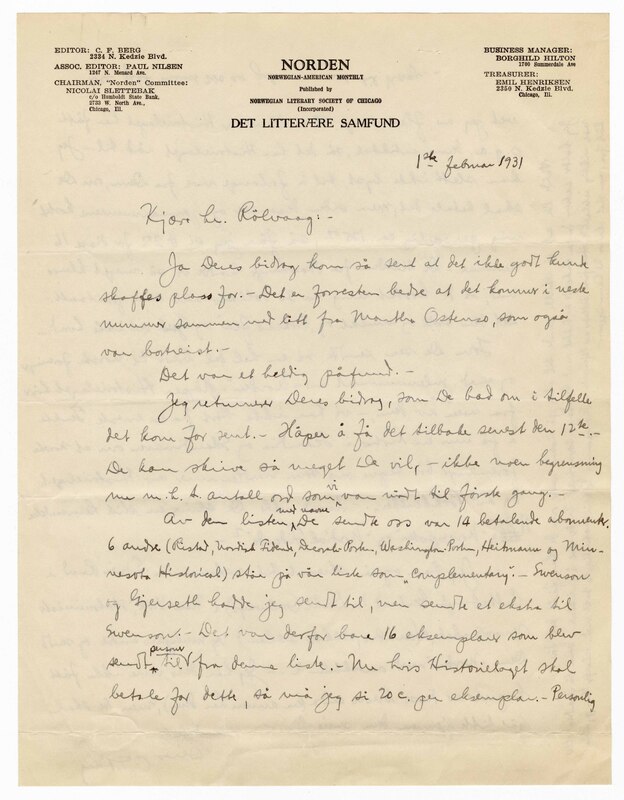 EDITOR: C. F. BERG
2334 N. Kedzie Blvd.
ASSOC. EDITOR: PAUL NILSEN
1247 N. Menard Ave.
CHAIRMAN, "Norden" Committee:
NICOLAI SLETTEBAK
c/o Humboldt State Bank,
2733 W. North Ave.,
Chicago, Ill.
NORDEN
NORWEGIAN-AMERICAN MONTHLY
Published by
NORWEGIAN LITERARY SOCIETY OF CHICAGO
(Incorporated)
DET LITTERÆRE SAMFUND
BUSINESS MANAGER:
BORGHILD HILTON
1700 Summerdale Ave
TREASURER:
EMIL HENRIKSEN
2350 N. Kedzie Blvd.
Chicago, Ill.
1ste februar 1931
Kjære hr. Rölvaag:-
Ja Deres bidrag kom så sent at det ikke godt kunde
skaffes plass for.- Det er forresten bedre at det kommer i neste
nummer sammen med litt fra Martha Ostenso, som også
var bortreist.-
Det var et heldig påfund.-
Jeg returnerer Deres bidrag, som De bad om i tilfelle
det kom for sent.- Håper å få det tilbake senest den 12te.-
De kan skrive så meget De vil, - ikke noen begrensning
nu m.h.t. antall ord som vi var nödt til förste gang.-
Av den listen med navne De sendte oss var 14 betalende abonnenter.
6 andre (Ristad, Nordisk Tidende, Decorah-Posten, Washington-Posten, Heitmann og Min-
nesota Historical) står på vår liste som "Complementary".- Swenson
og Gjerseth hadde jeg sendt til, men sendte et ekstra til
Swenson.- Det var derfor bare 16 eksemplarer som blev
sendt til personer fra denne liste.- Nu hvis Historielaget skal
betale for dette, så må jeg si 20c. per eksemplar.- Personlig